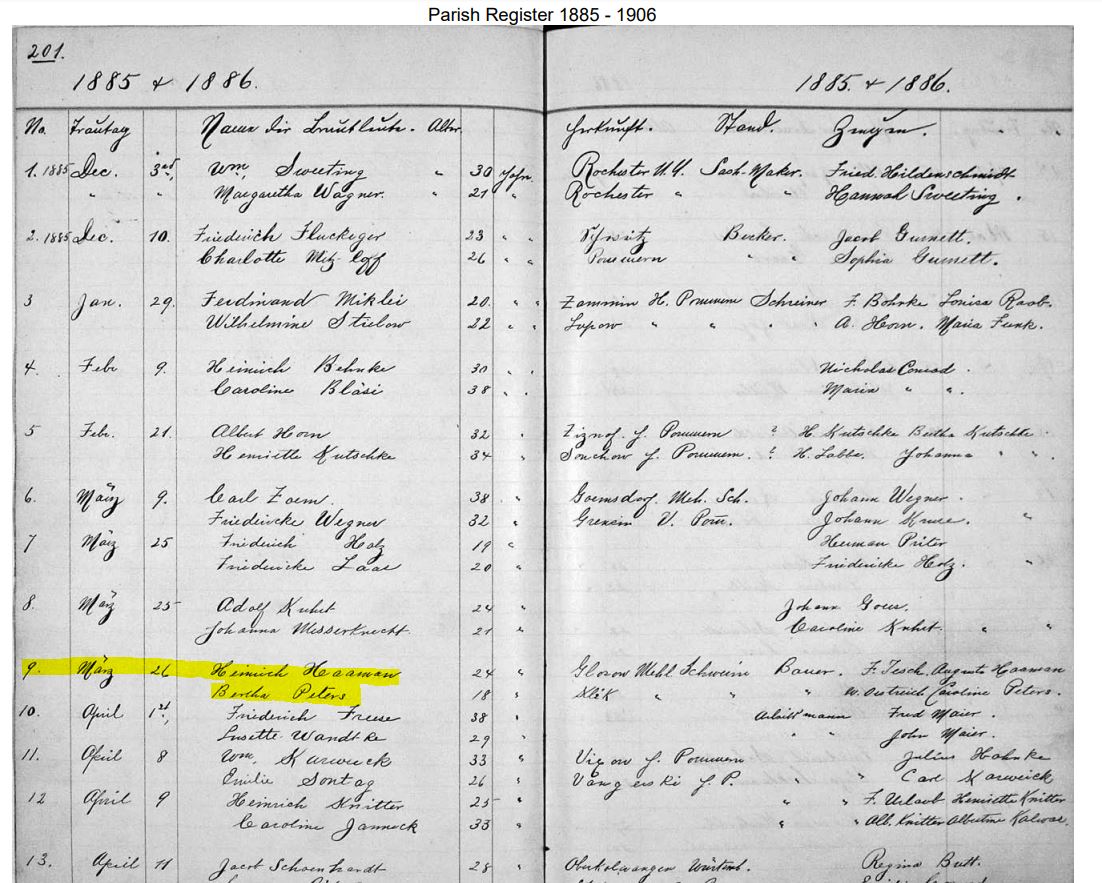 Parish Register 1885 - 1906
201.
1885 & 1886. 1885. & 1886.
No. Trautag Namen der Brautleute. Alter. Herkunft. Stand. Zeugen.
1. 1885 Dec. 3rd, Wm. Sweeting " 30 Jahr. Rochester N.Y. Sash-Maker. Fried. Hildenschmidt
" " Margaretha Wagner. 21 " Rochester " Hannah Sweeting.
2. 1885 Dec. 10. Friederich Fluckeger 23 " " Schweitz Becker. Jacob Gunett.
Charlotte 26 " " Pommern " " Sophia Gunett.
3 Jan. 29. Ferdinand Miklei 20. " " Zammin H. Pommern Schreiner F. Bohrke Louisa Raab.
Wilhelmine Strelow 22 " " Lupow " " " A. Horn. Maria Funk.
4. Febr 9. Heinrich Behnke 30 " " Nicholas Conrad.
Caroline Bläsi 38 " " Maria " ".
5 Febr. 21. Albert Horn 32 " Pommern ? H. Kutschke Bertha Kutschke
Henriette Kutschke 34 " Pommern. ? H. Labbe. Johanna " ".
6. März 9. Carl Zoem. 38 " Meh. Sch. Johann Wegner.
Friedericke Wegner 32 " Grensin V. Pom. Johann Kruse. "
7 März 25 Friederich Holz 19 " Herman Priter
Friedericke Laas 20 " Friedericke Holz. "
8. März 25 Adolf Kuhst 24 " Johann Goes.
Johanna Messerknecht. 21 " Caroline Kuhst. " "
9. März 26 Heinrich Haaman 24 " Mehl. Schwerin Bauer. F. Tesch. Auguste Haaman
Bertha Peters 18 " Klik " " " W. Oestreich Caroline Peters.
10. April 1st, Friederich Freese 38 " Arbeitmann Fred Maier.
Lusette Wandtke 29 " " " John Maier.
11. April 8 Wm. Karweick 33 " Vixow H. Pommern Julius Hahnke
Emilie Sontag 26 " Vangerski H. P. " " Carl Karweick
12 April 9 Heinrich Knitter 25 " " " F. Urlaub Henriette Knitter
Caroline Janneck 33 " " " Alb. Knitter Albertine Kalwas.
13. April 11 Jacob Schoenhardt 28 " Oberkolwangen Würtemb. Regina Butt.